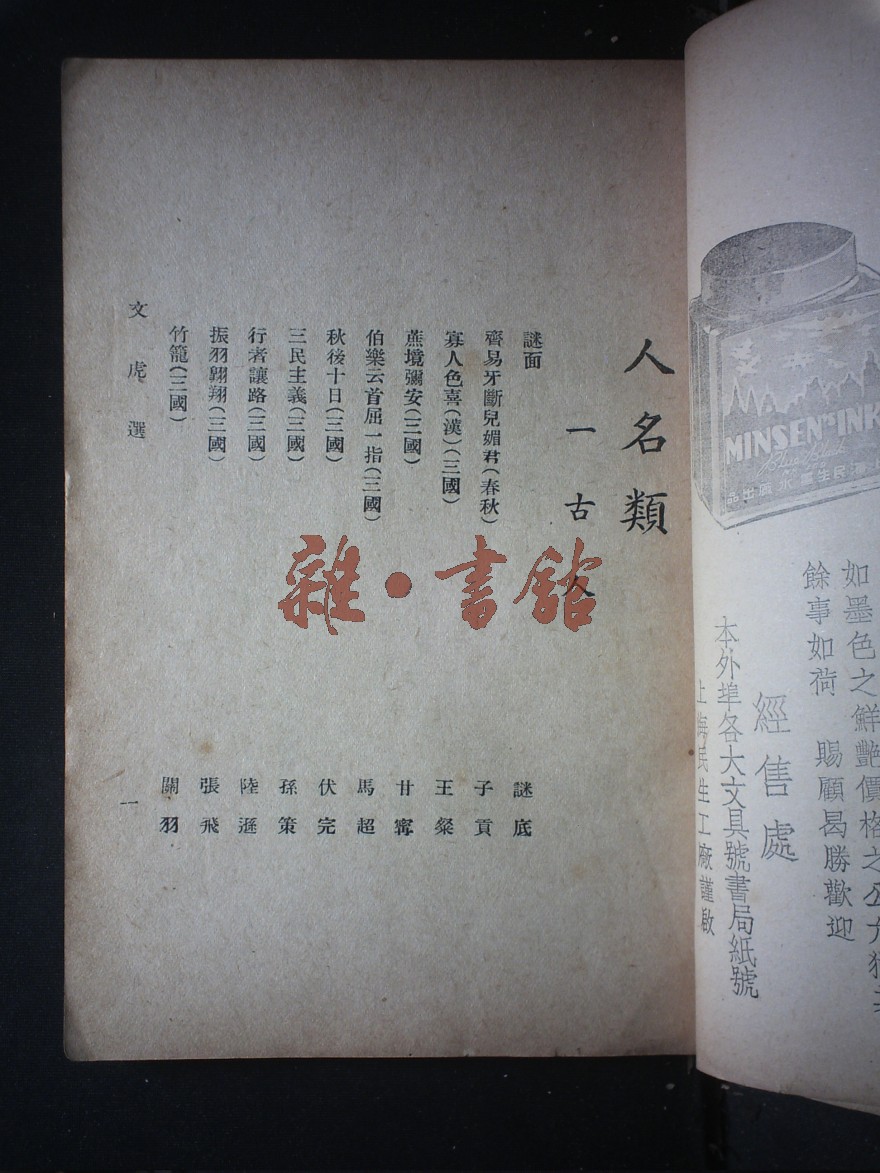 人名類
一 古人
謎面
謎底
齊易牙斷兒媚君(春秋)
子貢
寡人色喜(漢)(三國)
王粲
蔗境彌安(三國)
甘寧
伯樂云首屈一指(三國)
馬超
秋後十日(三國)
伏完
三民主義(三國)
孫策
行者讓路(三國)
陸遜
振羽翺翔(三國)
張飛
竹籠(三國)
關羽
文虎選
一
雜·書館
MINSEN'S INK
如墨色之鮮艷價格之公
餘事如荷 賜顧曷勝歡迎
經售處
本外埠各大文具號書局紙號
上海民生工廠謹啟